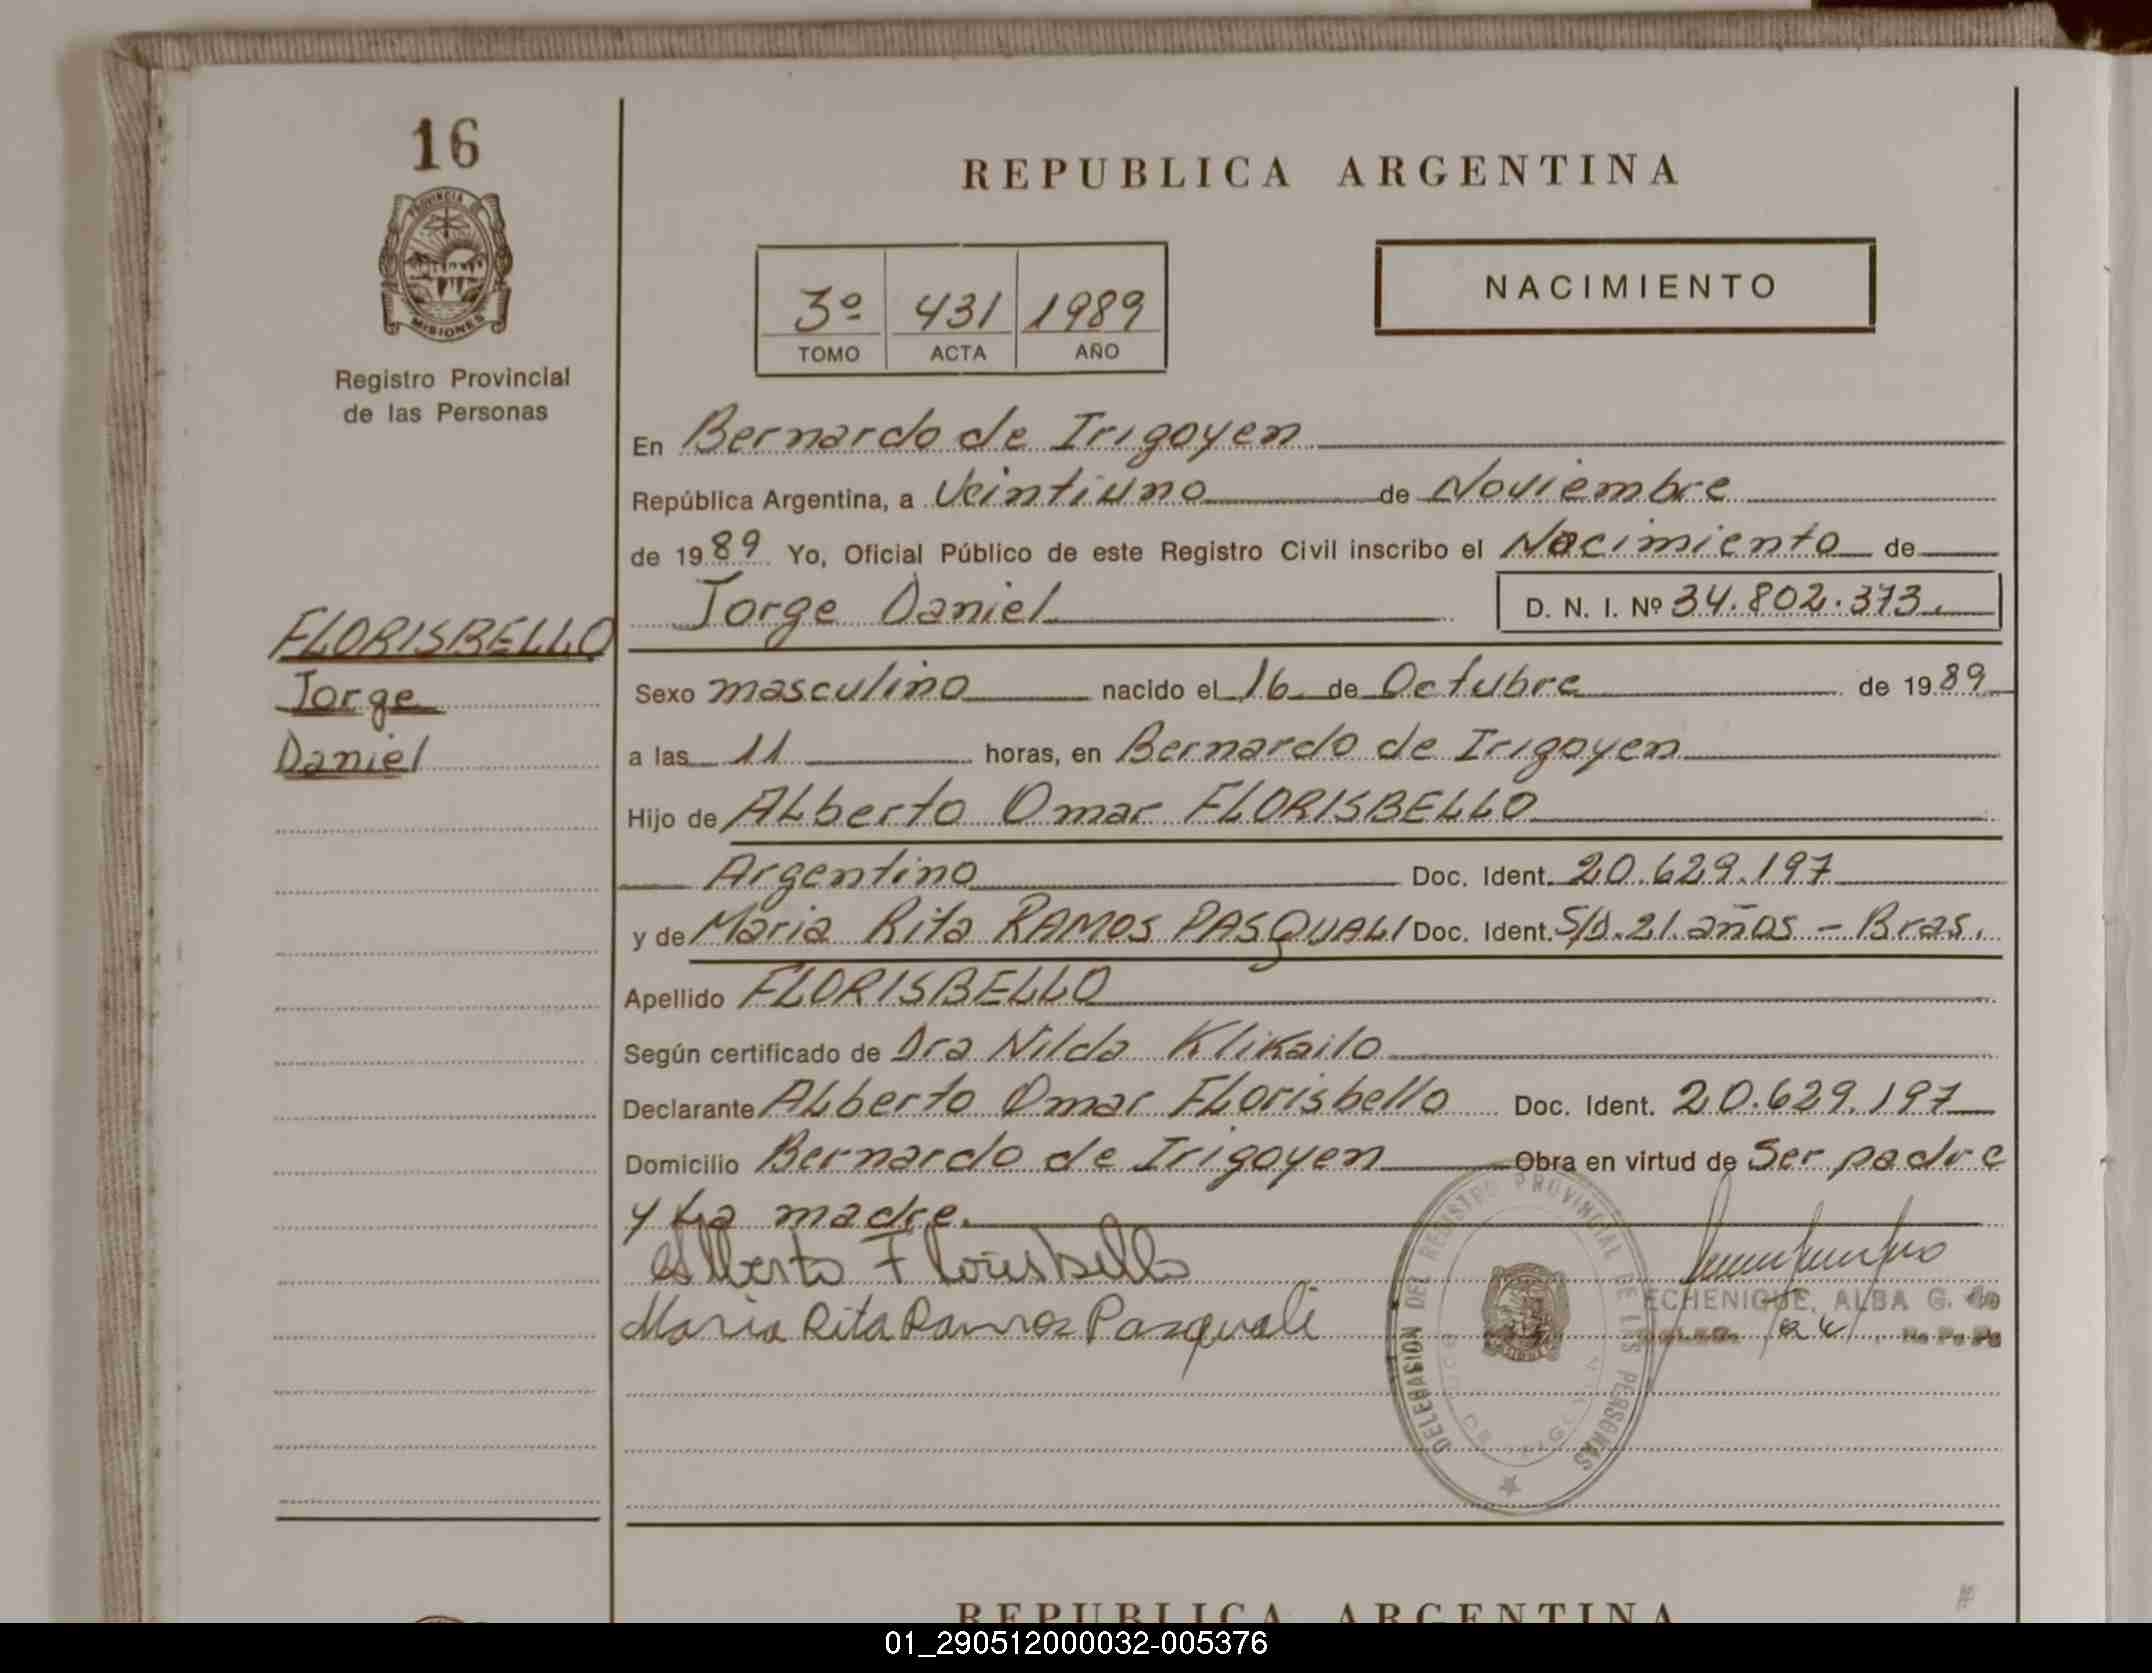 16
PROVINCIA DE
MISIONES
Registro Provincial
de las Personas
FLORISBELLO
Jorge
Daniel
REPUBLICA ARGENTINA
3º 431 1989
TOMO ACTA AÑO
NACIMIENTO
En Bernardo de Irigoyen
República Argentina, a Veintiuno de Noviembre
de 1989 Yo, Oficial Público de este Registro Civil inscribo el Nacimiento de
Jorge Daniel D. N. I. Nº 34.802.373.
Sexo masculino nacido el 16 de Octubre de 1989
a las 11 horas, en Bernardo de Irigoyen
Hijo de Alberto Omar FLORISBELLO
Argentino Doc. Ident. 20.629.197
y de Maria Rita RAMOS PASQUALI Doc. Ident. S/D. 21. años - Bras.
Apellido FLORISBELLO
Según certificado de Dra Nilda Klikailo
Declarante Alberto Omar Florisbello Doc. Ident. 20.629.197
Domicilio Bernardo de Irigoyen Obra en virtud de Ser padre
y La madre.
Alberto Florisbello
Maria Rita Ramos Pasquali
DELEGASION DEL REGISTRO PROVINCIAL DE LAS PERSONAS
ECHENIQUE, ALBA G.
REPUBLICA ARGENTINA
01_290512000032-005376